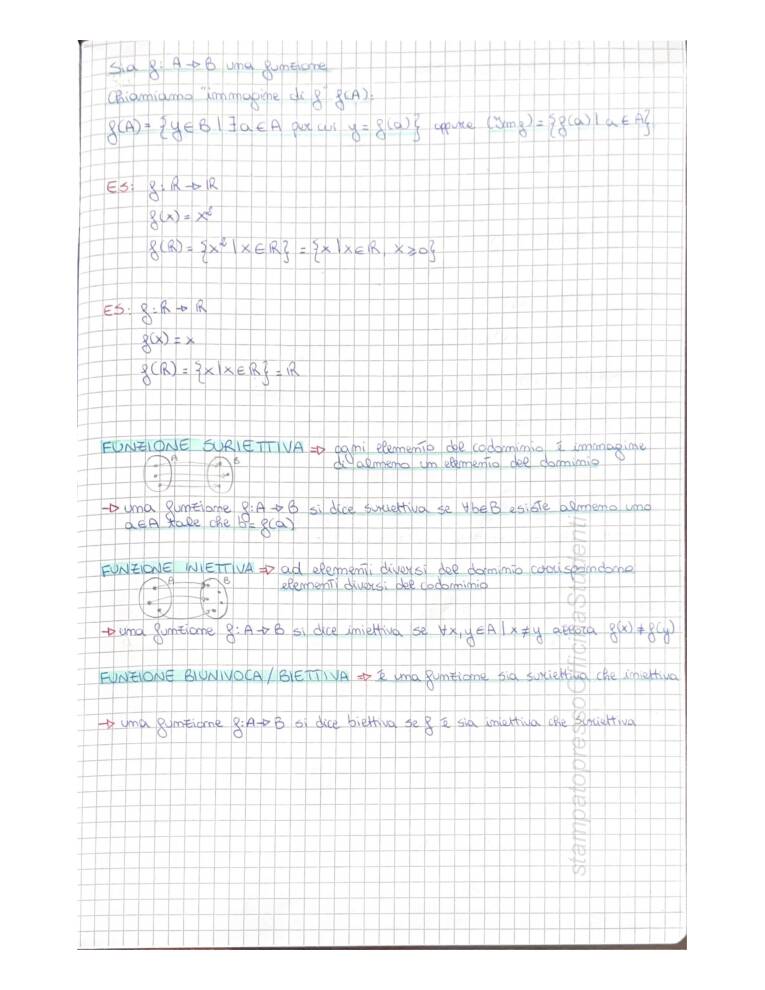 Sia f: A → B una funzione
Chiamiamo "immagine di f" f(A):
f(A) = {y ∈ B | ∃ a ∈ A per cui y = f(a)} oppure (Im f) = {f(a) | a ∈ A}
ES: f: ℝ → ℝ
f(x) = x²
f(ℝ) = {x² | x ∈ ℝ} = {x | x ∈ ℝ, x ≥ 0}
ES: f: ℝ → ℝ
f(x) = x
f(ℝ) = {x | x ∈ ℝ} = ℝ
FUNZIONE SURIETTIVA ⇒ ogni elemento del codominio è immagine
di almeno un elemento del dominio
A B
→ una funzione f: A → B si dice suriettiva se ∀b∈B esiste almeno uno
a∈A tale che b = f(a)
FUNZIONE INIETTIVA ⇒ ad elementi diversi del dominio corrispondono
elementi diversi del codominio
A B
→ una funzione f: A → B si dice iniettiva se ∀x,y∈A | x ≠ y allora f(x) ≠ f(y)
FUNZIONE BIUNIVOCA / BIETTIVA ⇒ è una funzione sia suriettiva che iniettiva
→ una funzione f: A → B si dice biettiva se f è sia iniettiva che suriettiva
stampatopressoOfficinaStudenti